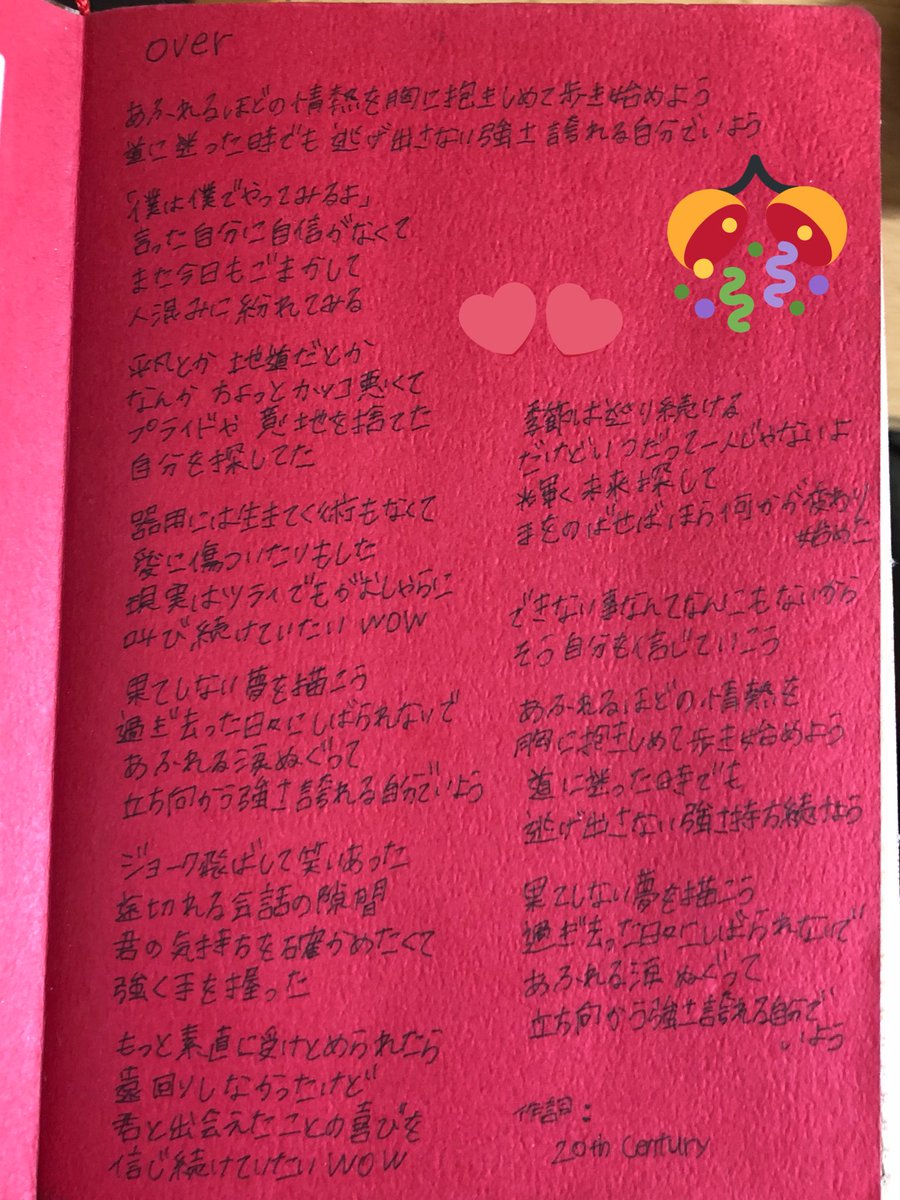 over
あふれるほどの情熱を胸に抱きしめて歩き始めよう
道に迷った時でも 逃げ出さない強さ 誇れる自分でいよう
「僕は僕でやってみるよ」
言った自分に自信がなくて
また今日もごまかして
人混みに紛れてみる
平凡とか 地道だとか
なんか ちょっとカッコ悪くて
プライドや 意地を捨てた
自分を探してた
器用には生きてく術もなくて
愛に傷ついたりもした
現実はツライでもがむしゃらに
叫び続けていたい WOW
果てしない夢を描こう
過ぎ去った日々にしばられないで
あふれる涙ぬぐって
立ち向かう強さ誇れる自分でいよう
ジョーク飛ばして笑いあった
途切れる会話の隙間
君の気持ちを確かめたくて
強く手を握った
もっと素直に受けとめられたら
遠回りしなかったけど
君と出会えたことの喜びを
信じ続けていたい WOW
季節は巡り続ける
だけどいつだって一人じゃないよ
輝く未来探して
手をのばせばほら何かが変わり
始めた
できない事なんてなんこもないから
そう自分も信じていこう
あふれるほどの情熱を
胸に抱きしめて歩き始めよう
道に迷った時でも
逃げ出さない強さ持ち続けよう
果てしない夢を描こう
過ぎ去った日々にしばられないで
あふれる涙 ぬぐって
立ち向かう強さ誇れる自分で
いよう
作詞:
20th Century